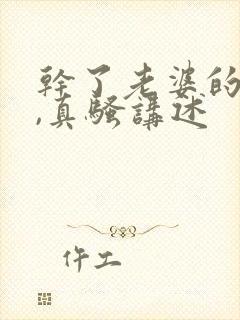 幹了老婆的
,真騷講述
仵工